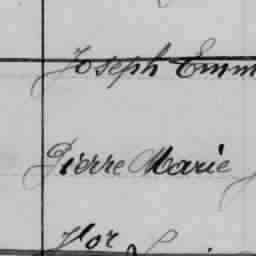 Joseph Emm
Pierre Marie
Vor